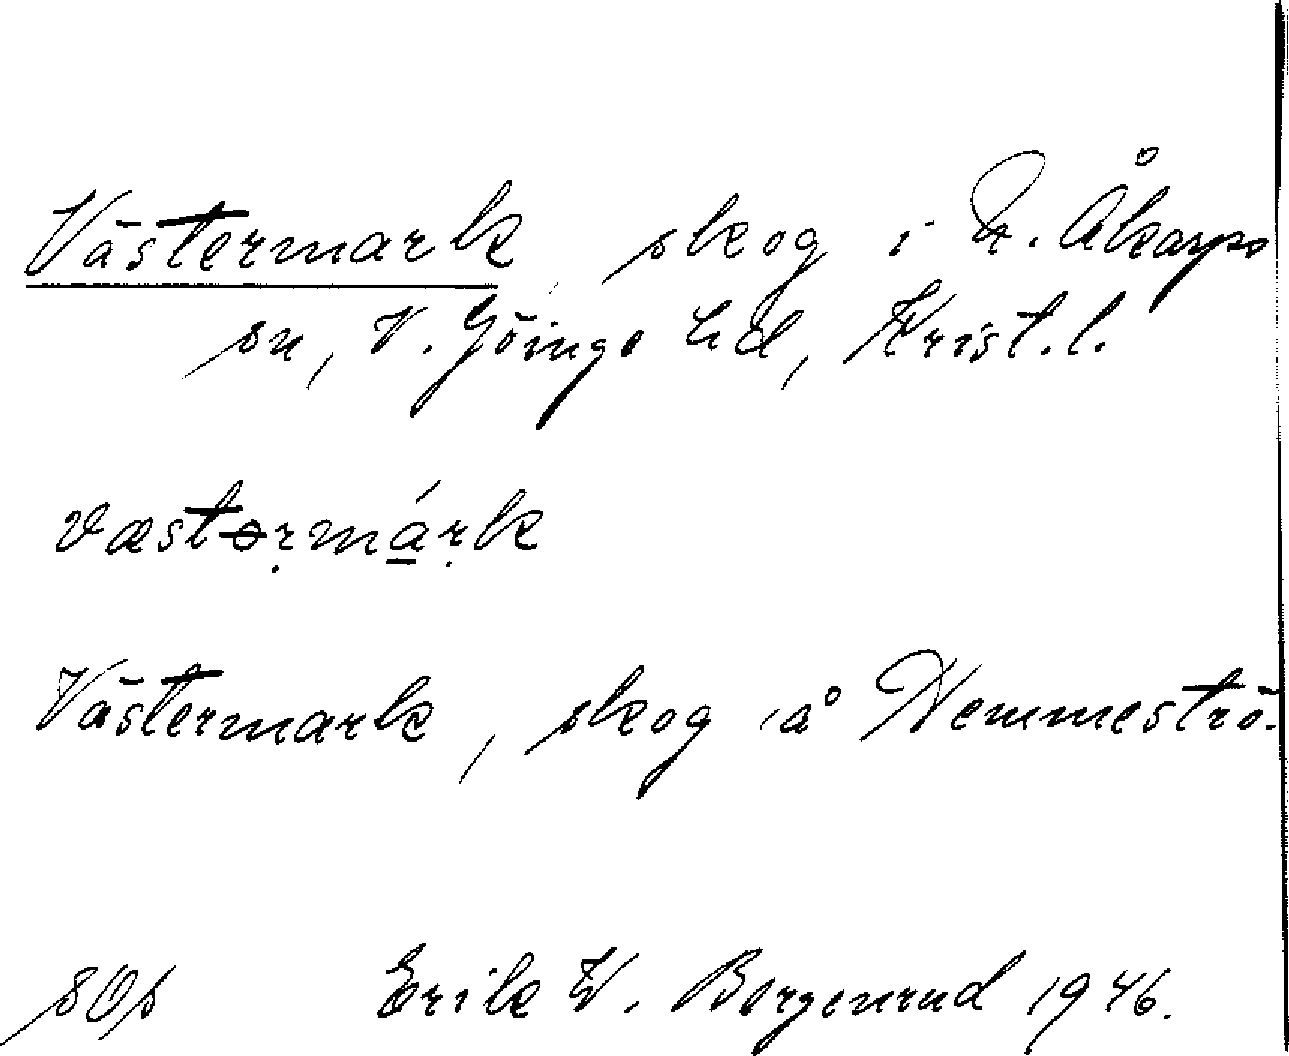 Västermark skog i N. Åkarps
sn, V. Göinge hd, Krist.l.
væstərmárk
Västermark, skog å Hemmeströ.
Erik W. Bergenrud 1946.